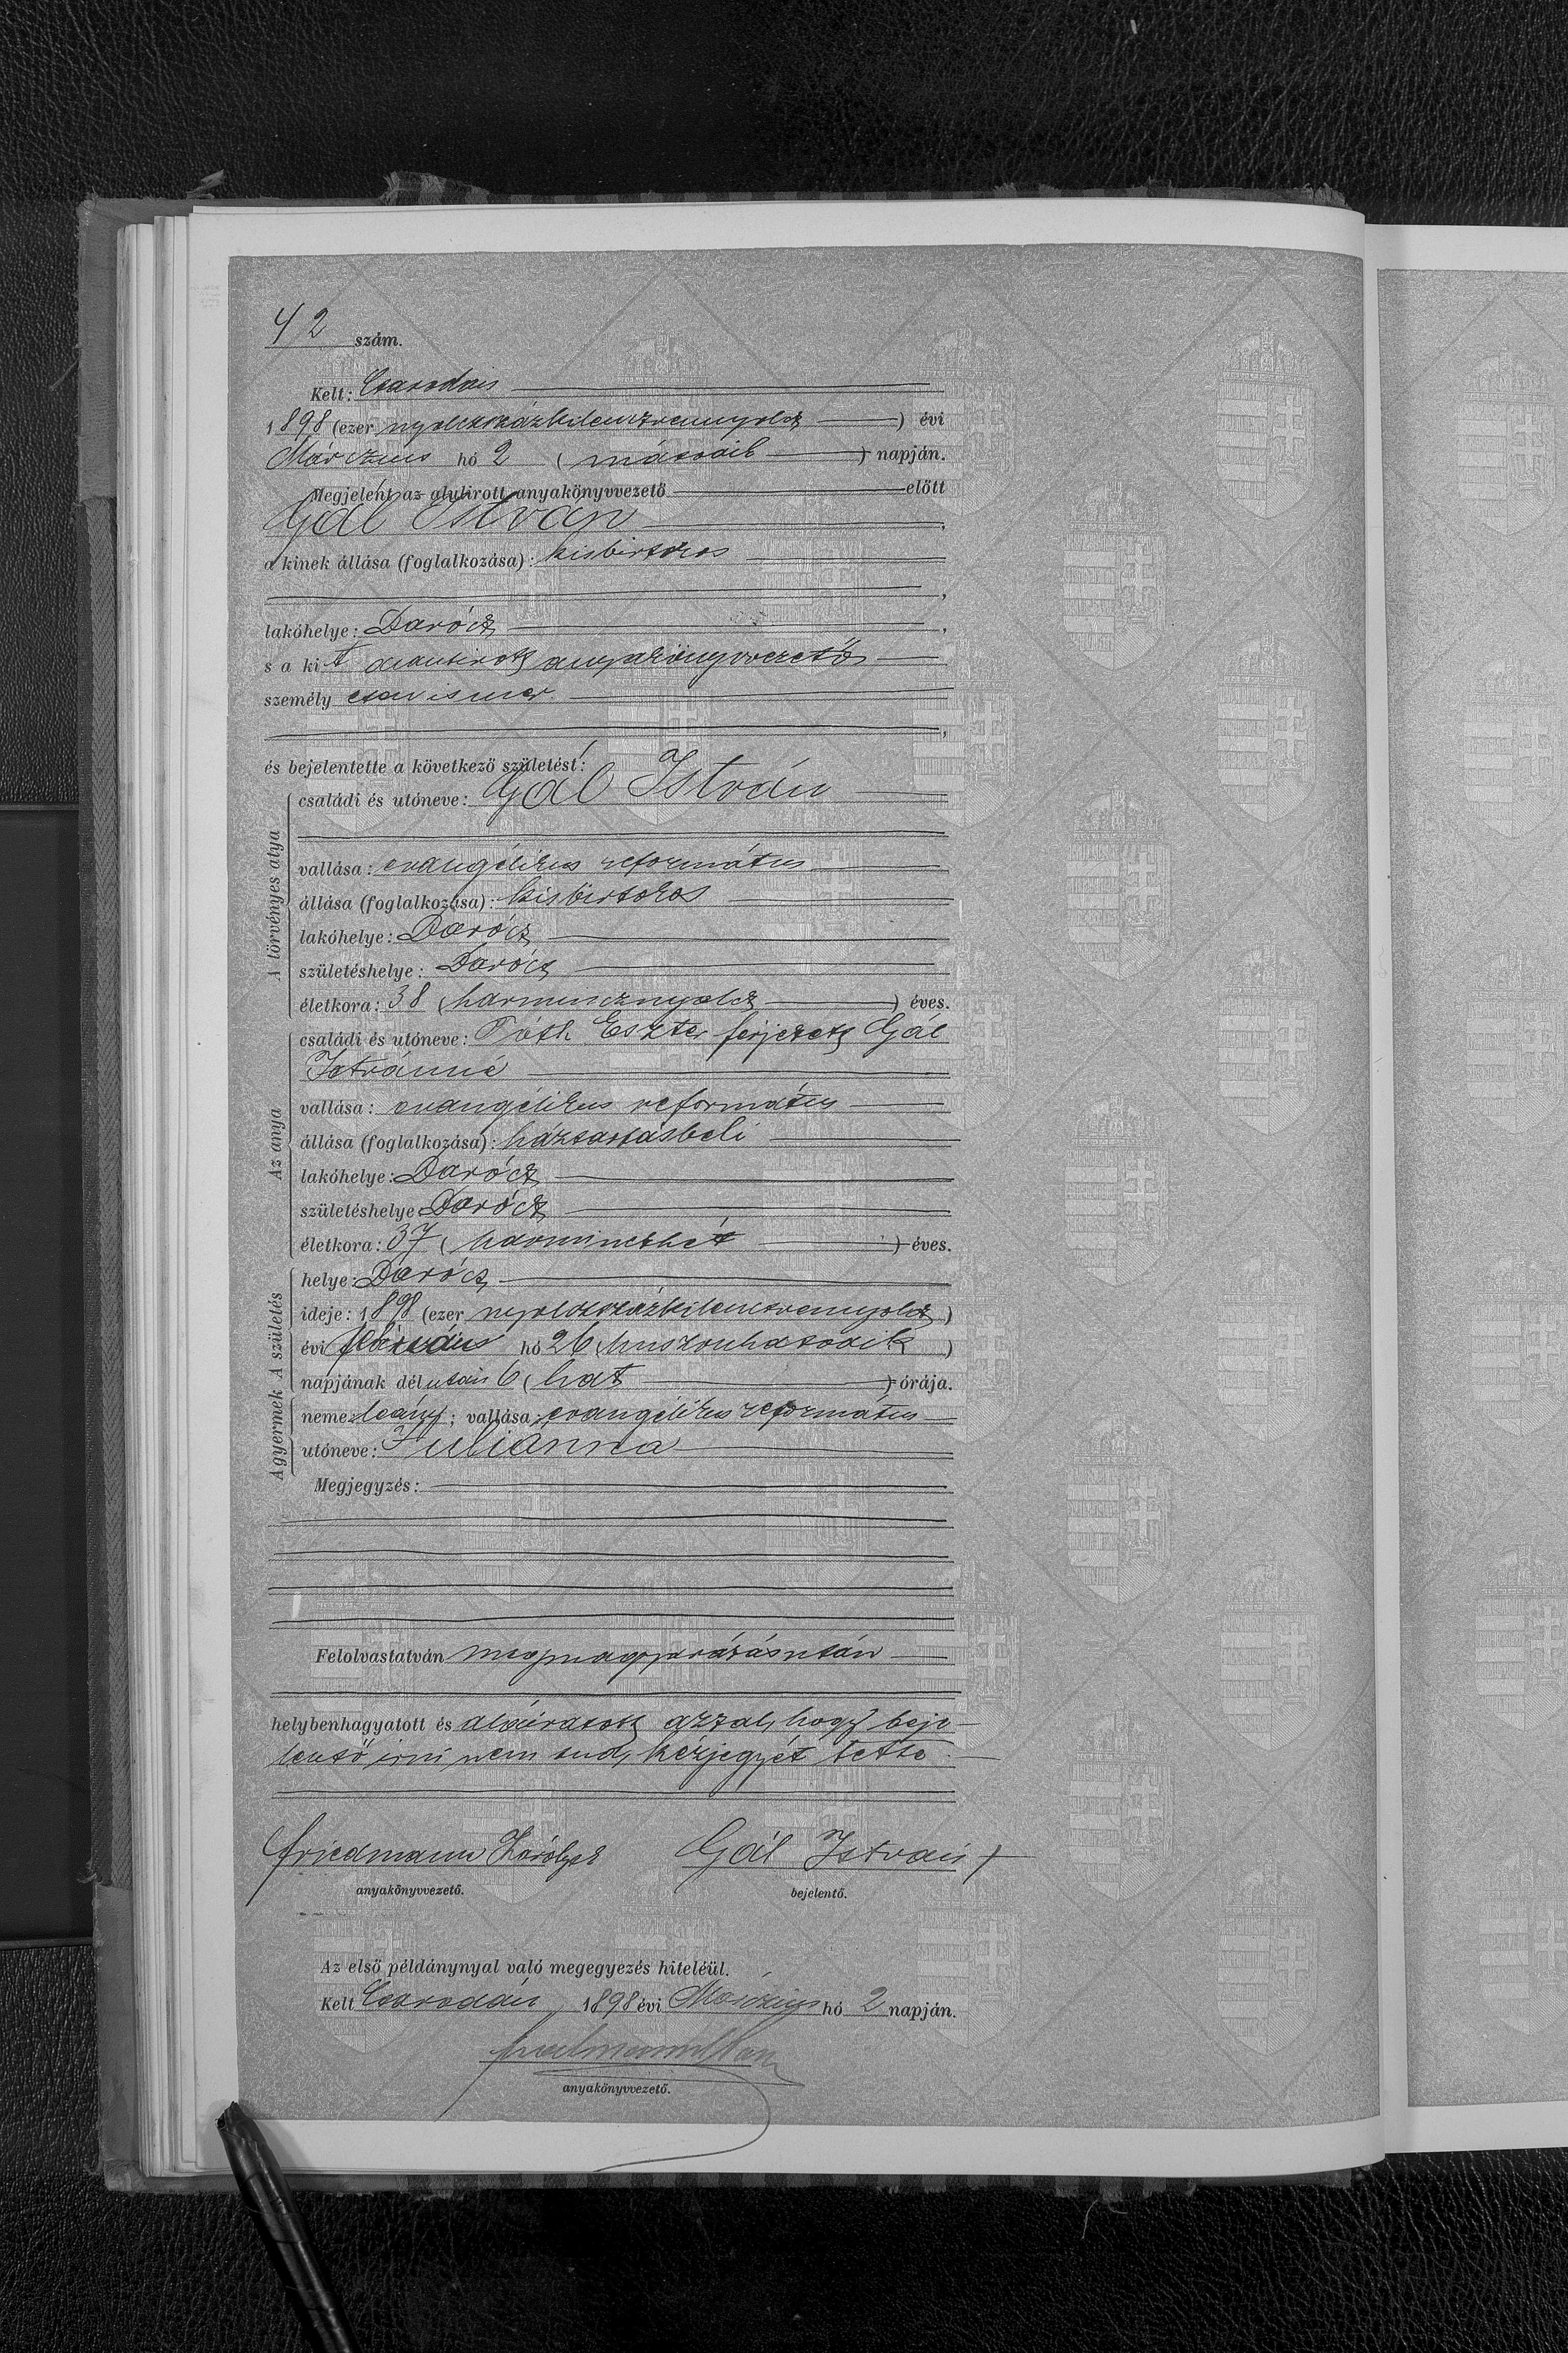 42 szám.
Kelt: Csarodán
1898 (ezer nyolczszázkilenczvennyolcz) évi
Márczius hó 2 (második) napján.
Megjelent az alulirott anyakönyvvezető előtt
Gál István,
a kinek állása (foglalkozása): kisbirtokos
,
lakóhelye: Darócz,
s a kit alantirott anyakönyvvezető
személyesen ismer.
,
és bejelentette a következő születést:
A törvényes atya
családi és utóneve: Gál István
vallása: evangélikus református
állása (foglalkozása): kisbirtokos
lakóhelye: Darócz
születéshelye: Darócz
életkora: 38 (harmincznyolcz) éves.
Az anya
családi és utóneve: Tóth Eszter férjezett Gál
Istvánné
vallása: evangélikus református
állása (foglalkozása): háztartásbeli
lakóhelye: Darócz
születéshelye Darócz
életkora: 37 (harminczhét) éves.
A születés
helye: Darócz
ideje: 1898 (ezer nyolczszázkilenczvennyolcz)
évi hó 26 (huszonhatodik)
napjának délután 6 (hat) órája.
A gyermek
neme: leány; vallása: evangélikus református
utóneve: Juliánna
Megjegyzés:
Felolvastatván megmagyarázásután
helybenhagyatott és aláiratott azzal, hogy beje-
lentő irni nem tud, kézjegyét tette.
Friedmann Károly Gál István +
anyakönyvvezető. bejelentő.
Az első példánynyal való megegyezés hiteléül.
Kelt Csarodán, 1898 évi Márczius hó 2 napján.
anyakönyvvezető.